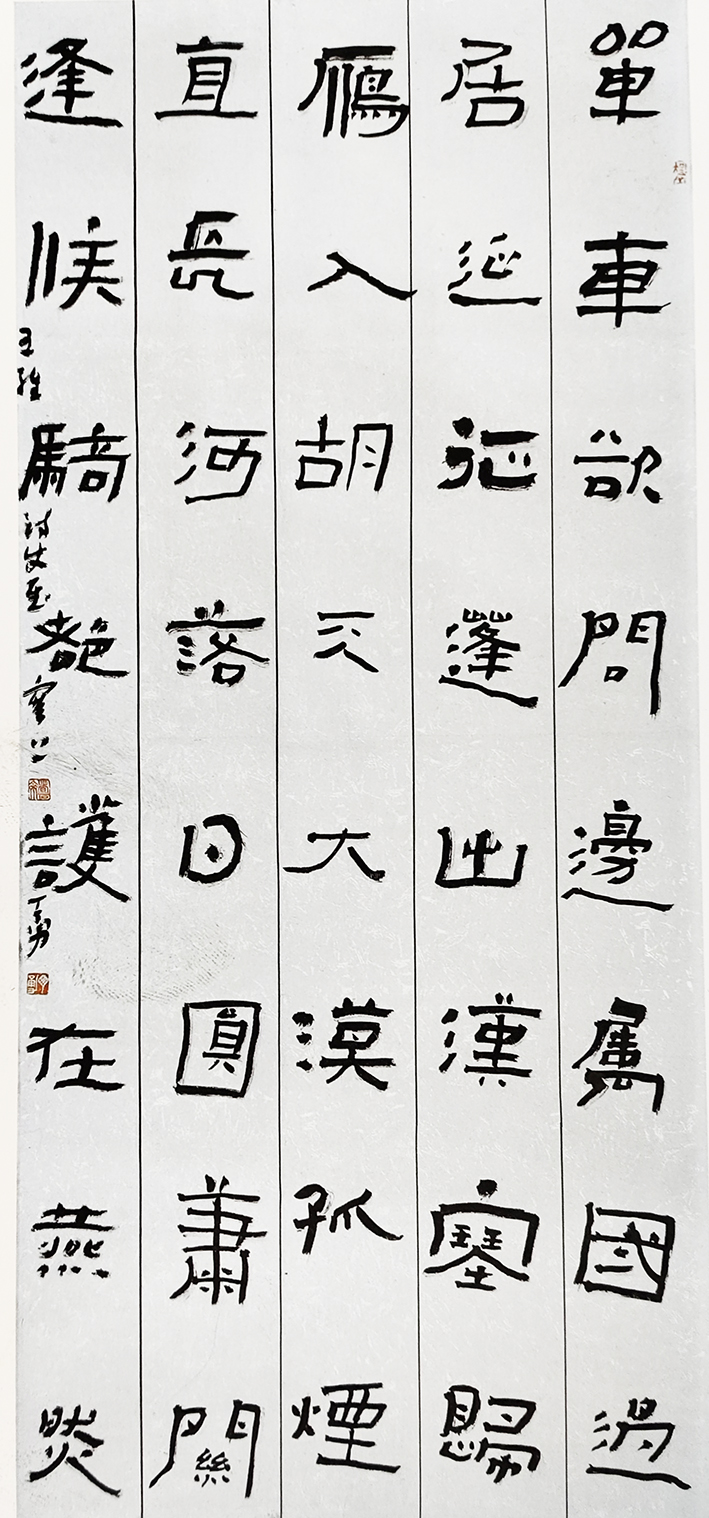 單車欲問邊屬國過
居延征蓬出漢塞歸
鴈入胡天大漠孤煙
直長河落日圓蕭關
逢候騎都護在燕然
王維詩使至塞上 丁勇